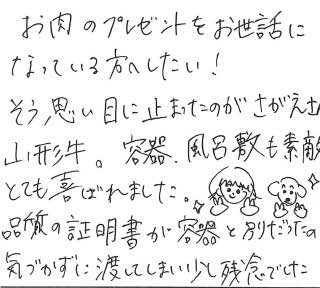 お肉のプレゼントをお世話に
なっている方へしたい!
そう思い目に止まったのがさがえさん
山形牛。容器、風呂敷も素敵
とても喜ばれました。
品質の証明書が容器と別だったの
気づかずに渡してしまい少し残念でした